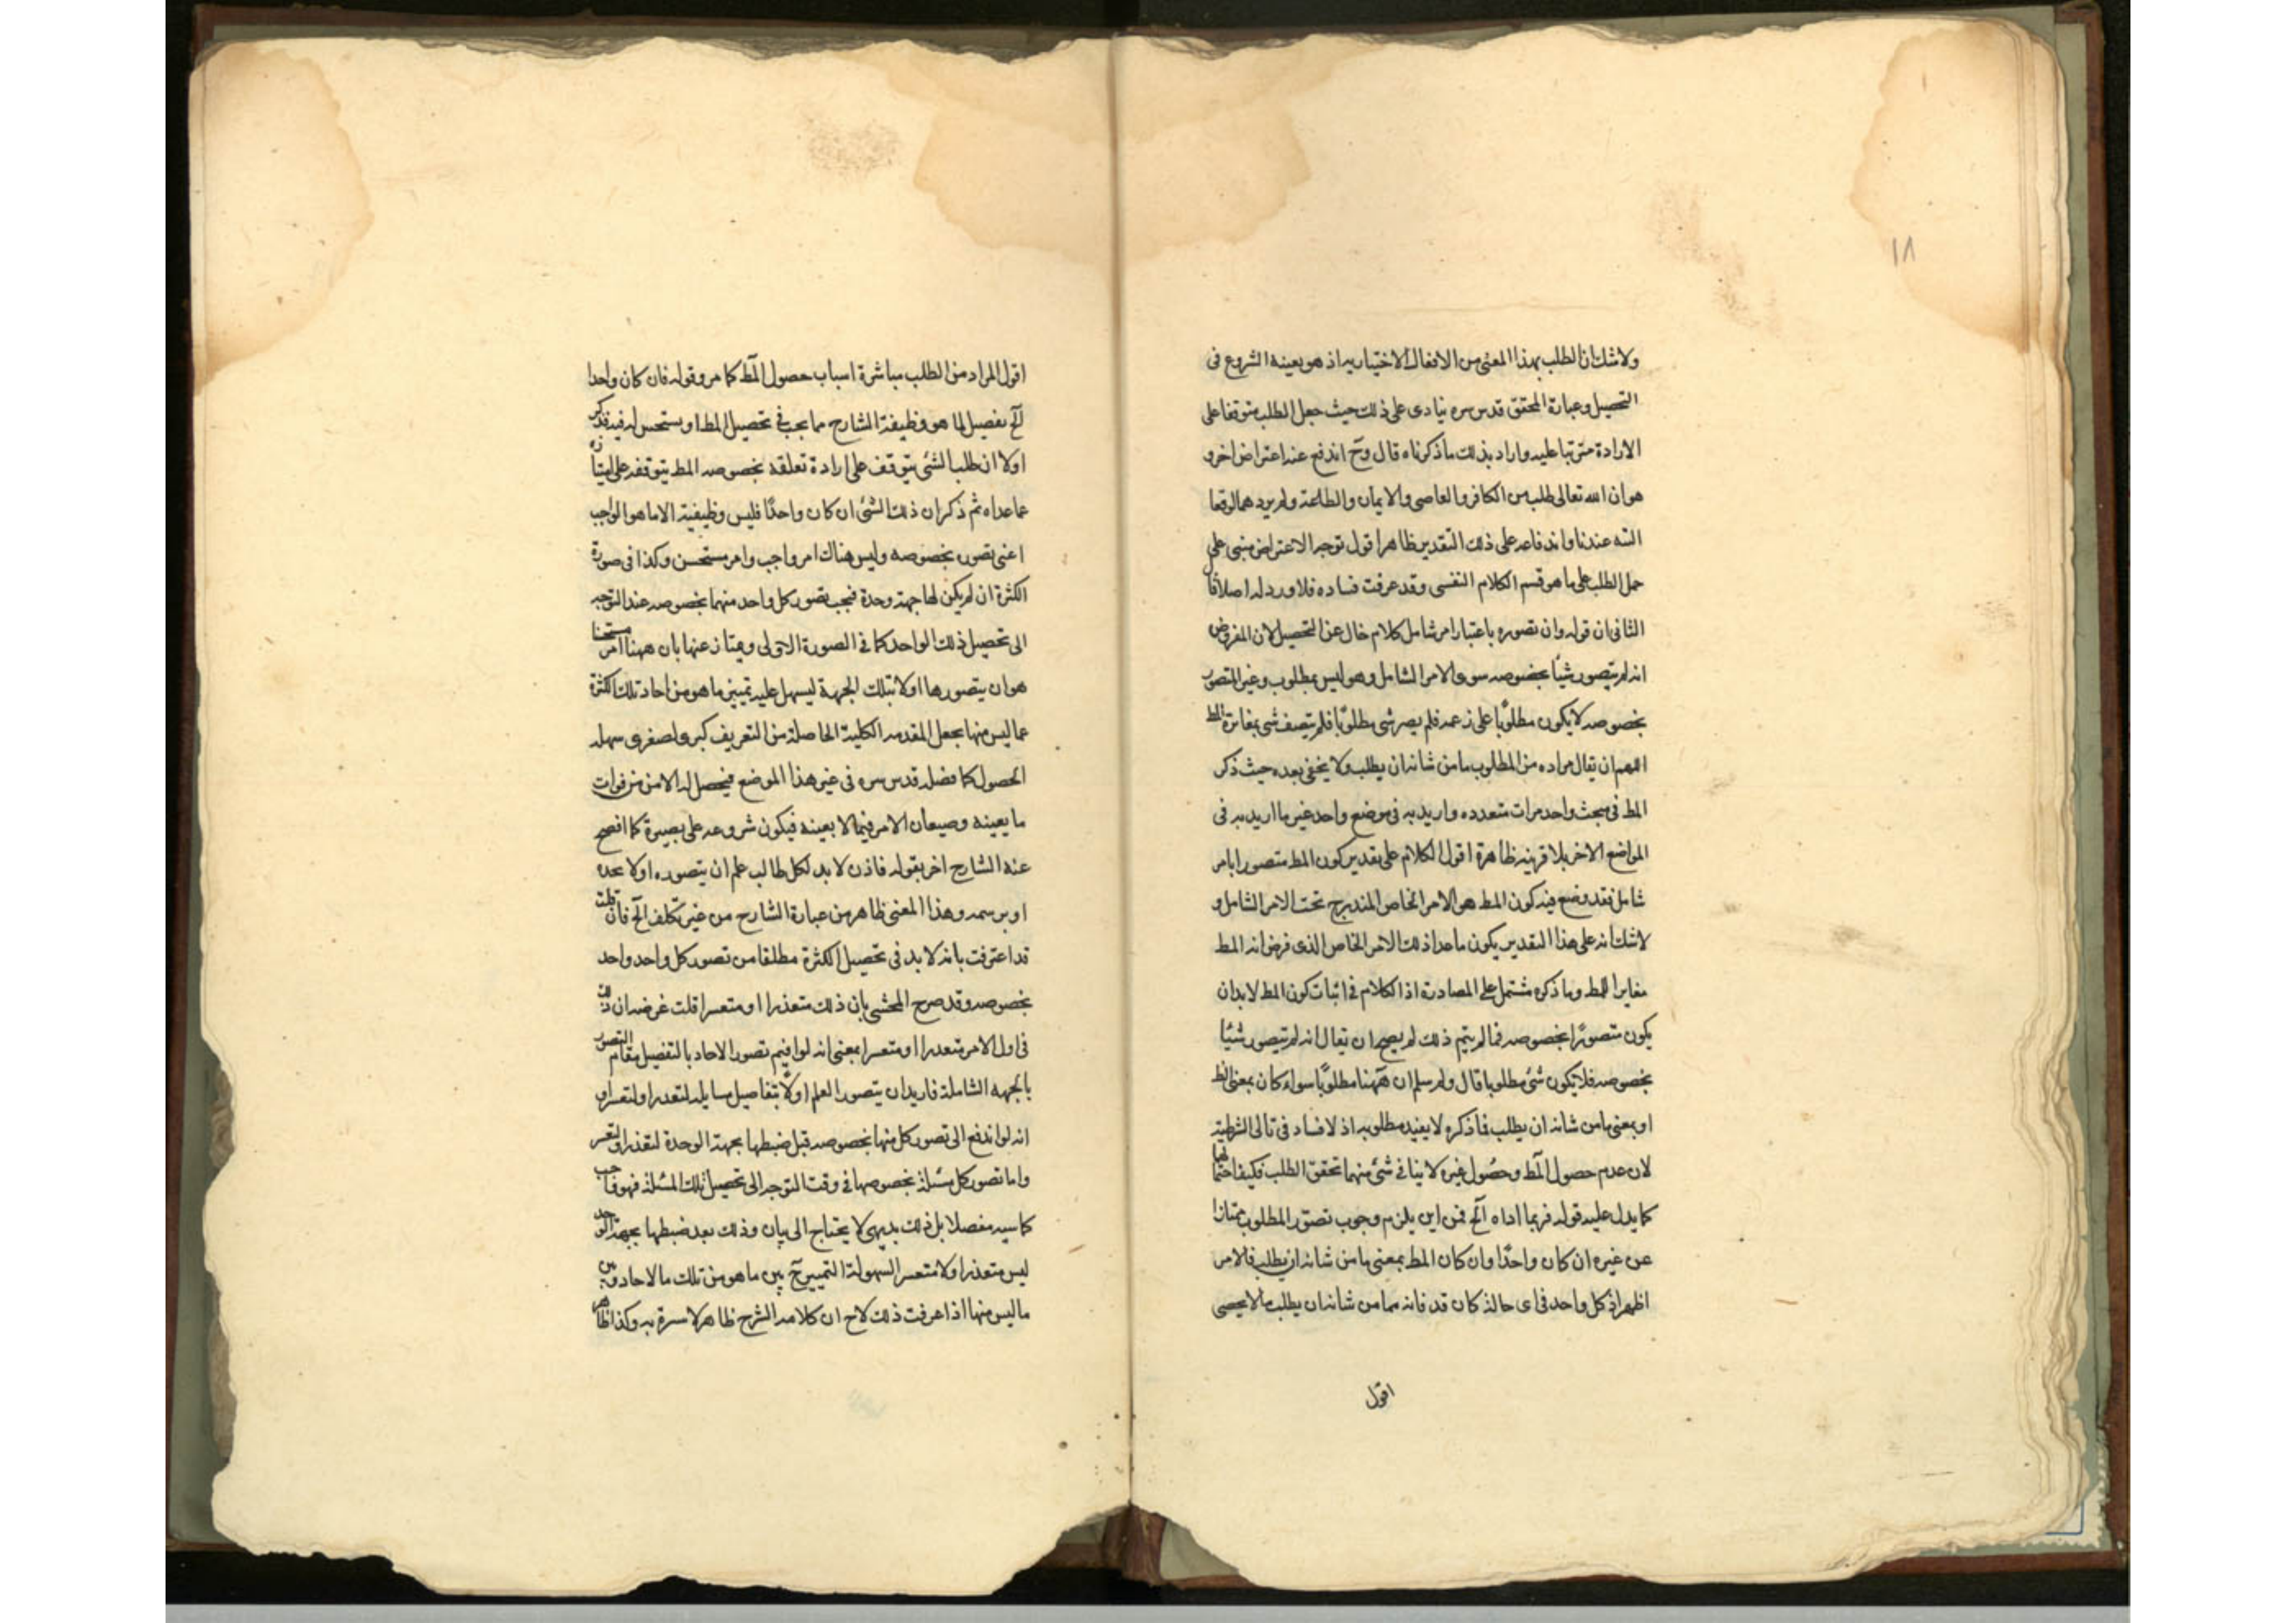 ١٨
ولا شك ان الطلب بهذا المعنى من الافعال الاختيارية اذ هو بعينه الشروع فى
التحصيل وعبارة المحقق قدس سره ينادى على ذلك حيث جعل الطلب متوقفا على
الارادة مترتبا عليه واراد بذلك ما ذكرناه قال وح اندفع عنه اعتراض اخر و
هو ان الله تعالى طلب من الكافر والعاصى والايمان والطاعة ولم يردهما لوقعا
البته عندنا واندفاعه على ذلك التقدير ظاهر اقول توجه الاعتراض مبنى على
حمل الطلب على ما هو قسم الكلام النفسى وقد عرفت فساده فلا ورد له اصلا قال
الثانى ان قوله وان تصوره باعتبار امر شامل كلام خال عن التحصيل لان المفروض
انه لم يتصور شيئا بخصوصه سوى الامر الشامل وهو ليس بمطلوب وغير المتصور
بخصوصه لا يكون مطلوبًا على زعمه فلم يصر شى مطلوبًا فلم يتصف شى بمغايرة المط
اللهم ان يقال مراده من المطلوب ما من شانه ان يطلب ولا يخفى بعده حيث ذكر
المط فى مبحث واحد مرات متعدده واريد به فى موضع واحد غير ما اريد به فى
المواضع الاخر بلا قرينه ظاهرة اقول الكلام على تقدير كون المط متصورا بامر
شامل فقد وضع فيه كون المط هو الامر الخاص المندرج تحت الامر الشامل و
لا شك انه على هذا التقدير يكون ما عدا ذلك الامر الخاص الذى فرض انه المط
مغايرا للمط وما ذكره مشتمل على المصادرة اذ الكلام فى اثبات كون المط لا بد ان
يكون متصورًا بخصوصه فما لم يتم ذلك لم يصح ان يقال انه لم يتصور شيئا
بخصوصه فلا يكون شئ مطلوبا قال ولم سلم ان ههنا مطلوبًا سواء كان بمعنى المط
او بمعنى ما من شانه ان يطلب فما ذكره لا يفيد مطلوبه اذ لا فساد فى تالى الشرطية
لان عدم حصول المط وحصُول غيره لا ينافى شئ منهما تحقق الطلب فكيف احتمالهما
كما يدل عليه قوله فربما اداه الخ فمن اين يلزم وجوب تصور المطلوب ممتازا
عن غيره ان كان واحدًا وان كان المط بمعنى ما من شانه ان يطلب فالامر
اظهر اذ كل واحد فى اى حالة كان قد فاته مما من شانه ان يطلب ما لا يحصى
اقول
اقول المراد من الطلب مباشرة اسباب حصول المط كما مر وقوله فان كان واحدا
الخ تفصيل لما هو وظيفة الشارح مما يجب فى تحصيل المط او يستحسن له فيه فذكر
اولا ان طلب الشئ يتوقف على ارادة تعلقه بخصوصه المط يتوقفه على امتيازه
عما عداه ثم ذكر ان ذلك الشئ ان كان واحدًا فليس وظيفية الا ما هو الواجب
اعنى تصوره بخصوصه وليس هناك امر واجب وامر مستحسن وكذا فى صورة
الكثرة ان لم يكن لها جهة وحدة فيجب تصور كل واحد منهما بخصوصه عند التوجه
الى تحصيل ذلك الواحد كما فى الصورة الاولى ويمتاز عنها بان ههنا امر مستحسنا
هو ان يتصورها اولا بتلك الجهة ليسهل عليه تميز ما هو من احاد تلك الكثرة
عما ليس منها بجعل المقدمه الكلية الحاصلة من التعريف كبرى لصغرى سهله
الحصول كما فصله قدس سره فى غير هذا الموضع فيحصل له الامن من فوات
ما يعينه وصيعان الامر فيما لا بعينه فيكون شروعه على بصيرة كما افصح
عنه الشارح اخر بقوله فاذن لا بد لكل طالب علم ان يتصوره اولا بحده
او برسمه وهذا المعنى ظاهر من عبارة الشارح من غير تكلف الخ فان قلت
قد اعترفت بانه لا بد فى تحصيل الكثرة مطلقا من تصور كل واحد واحد
بخصوصه وقد صرح المحشى بان ذلك متعذرا او متعسرا قلت غرضه ان ذلك
فى اول الامر متعدرا او متعسرا بمعنى انه لو اقيم تصور الاحاد بالتفصيل مقام التصور
بالجهه الشاملة فاريد ان يتصور العلم اولًا بتفاصيل مسايله لتعدرا ولتعسر او
انه لو اندفع الى تصور كل منها بخصوصه قبل ضبطها بجهة الوحدة لتعذر او لتعسر
واما تصور كل مسئلة بخصوصها فى وقت التوجه الى تحصيل تلك المسئلة فهو واجب
كما سيه مفصلا بل ذلك بديهى لا يحتاج الى بيان وذلك بعد ضبطها بجهة الوحدة
ليس متعذرا ولا متعسر السهولة التمييز ح بين ما هو من تلك ما لاحاد وبين
ما ليس منها اذا عرفت ذلك لاح ان كلامه الشرح ظاهر لا سرة به وكذا ظاهر